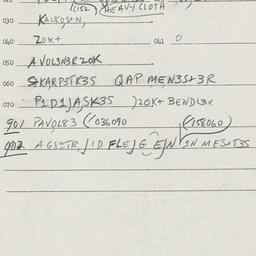 (152) (HEAVY CLOTH
030 KALEQSN,
040 ZOK+ 041 0
050 A VOL3N3R ZOK
060 SKARP3TK3S QAP MEN3S+3R
070 P1D1JASK3S )ZOK+ BENDL3X
901 PAVOL83 (/036090 (/158060)
902 AGSTR,J1D FLEJG EJN 1N MES+T3S